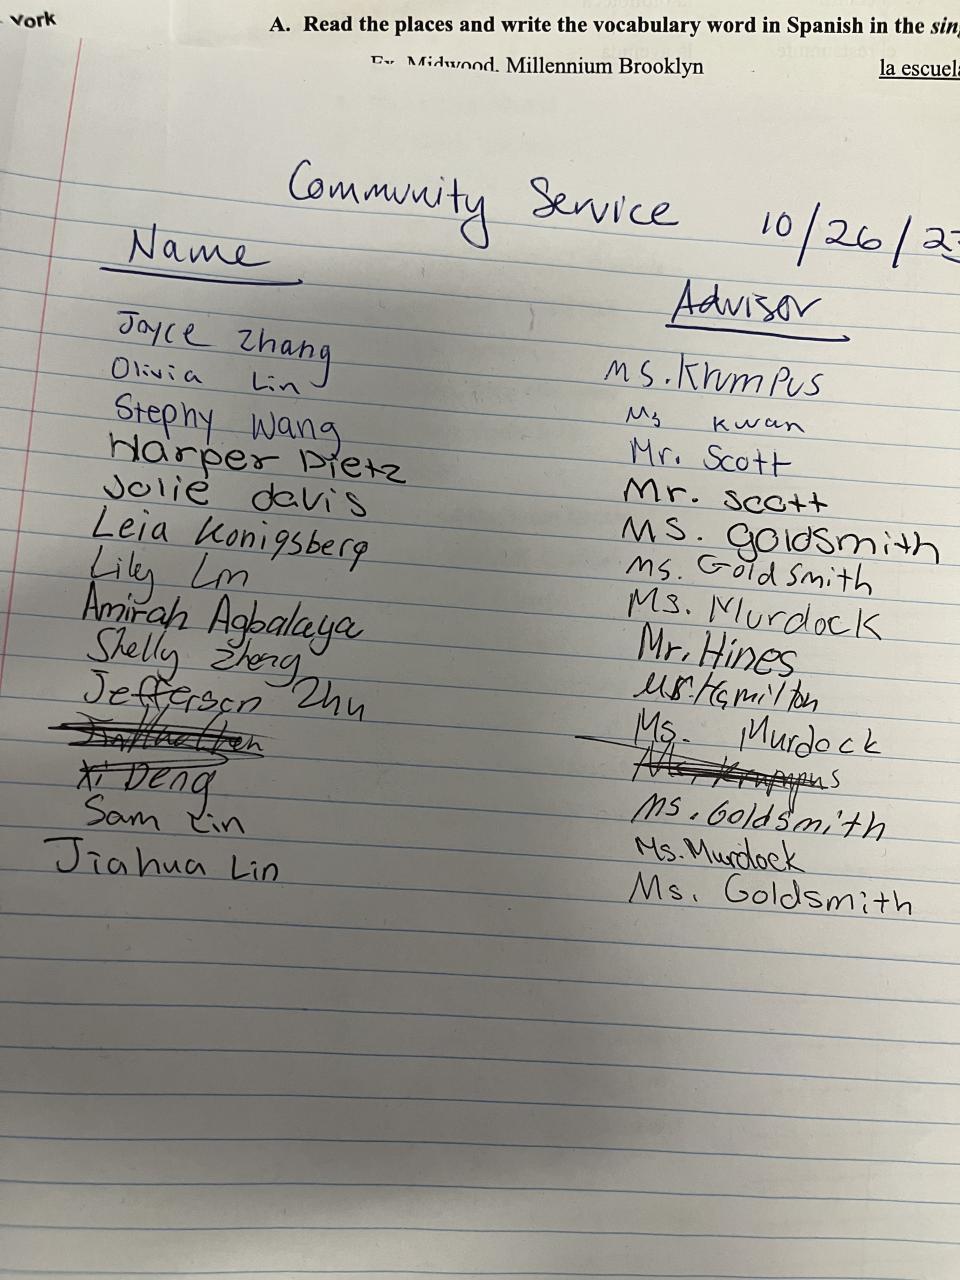 York
A. Read the places and write the vocabulary word in Spanish in the
Ex. Midwood, Millennium Brooklyn la escuela
Community Service 10/26/23
Name Advisor
Joyce Zhang Ms. Krumpus
Olivia Lin Ms Kwan
Stephy Wang Mr. Scott
Harper Dietz Mr. scott
Jolie davis MS. goldsmith
Leia Konigsberg Ms. Goldsmith
Lily Lin Ms. Murdock
Amirah Agbalaya Mr. Hines
Shelly Zheng Ms. Hamilton
Jefferson Zhu Ms. Murdock
Xi Deng Ms. Goldsmith
Sam Lin Ms. Murdock
Jiahua Lin Ms. Goldsmith